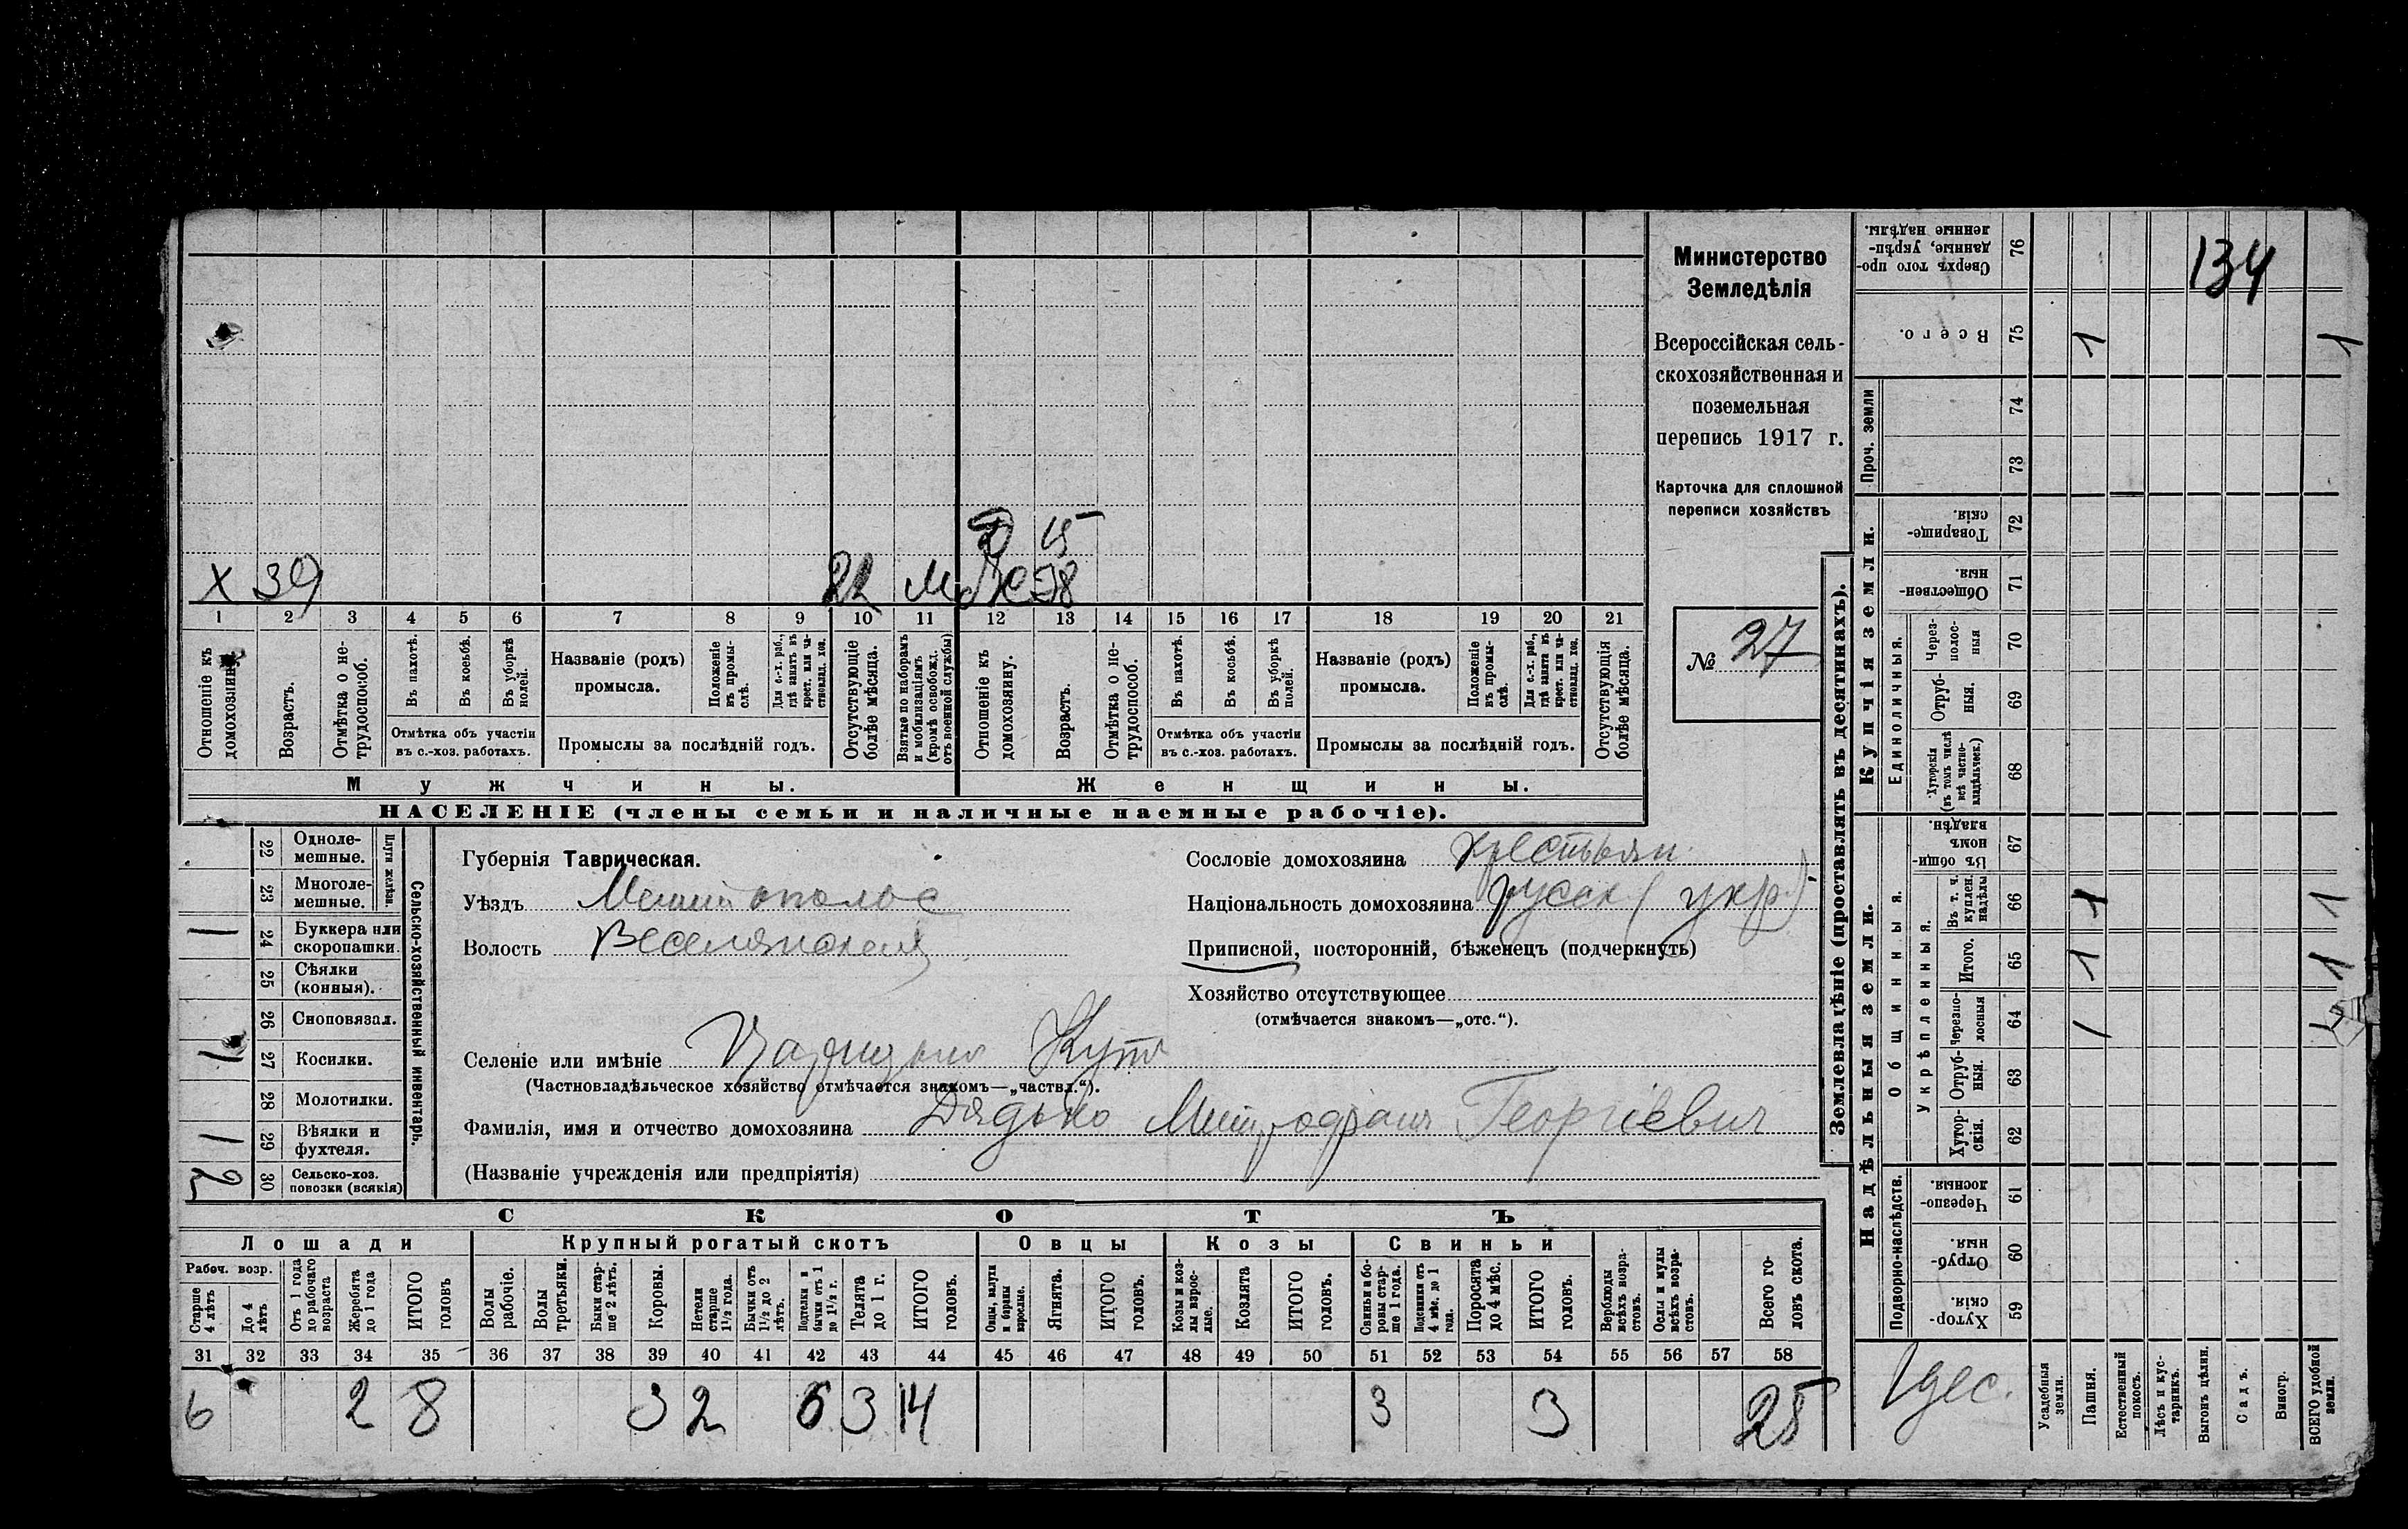 Министерство
Земледѣлія
Всероссійская сель-
скохозяйственная и
поземельная
перепись 1917 г.
Карточка для сплошной
переписи хозяйствъ
№ 27
134
15
х 39 22 Ж 38
1 2 3 4 5 6 7 8 9 10 11 12 13 14 15 16 17 18 19 20 21
Отношеніе къ домохозяину.
Возрастъ.
Отмѣтка о не-трудоспособ.
Въ пахотѣ.
Въ косьбѣ.
Въ уборкѣ полей.
Отмѣтка объ участіи
въ с.-хоз. работахъ.
Названіе (родъ)
промысла.
Положеніе въ промы-слѣ.
Для с.-х. раб., гдѣ занятъ въ крест. или ча-стновлад. хоз.
Промыслы за послѣдній годъ.
Отсутствующіе болѣе мѣсяца.
Взятые по наборамъ и мобилизаціямъ (кромѣ освобожд. отъ военной службы)
Отношеніе къ домохозяину.
Возрастъ.
Отмѣтка о не-трудоспособ.
Въ пахотѣ.
Въ косьбѣ.
Въ уборкѣ полей.
Отмѣтка объ участіи
въ с.-хоз. работахъ.
Названіе (родъ)
промысла.
Положеніе въ промы-слѣ.
Для с.-х. раб., гдѣ занята въ крест. или ча-стновлад. хоз.
Промыслы за послѣдній годъ.
Отсутствующія болѣе мѣсяца.
Мужчины. Женщины.
НАСЕЛЕНІЕ (члены семьи и наличные наемные рабочіе).
Сельско-хозяйственный инвентарь.
Плуги желѣзн.
22 Одноле-мешные.
23 Многоле-мешные.
1 24 Буккера или скоропашки.
25 Сѣялки (конныя).
26 Сноповязал.
1 27 Косилки.
28 Молотилки.
1 29 Вѣялки и фухтеля.
2 30 Сельско-хоз. повозки (всякія)
Губернія Таврическая.
Уѣздъ Мелитополъс
Волость Веселянская
Сословіе домохозяина крестьян.
Національность домохозяина русск (укр)
Приписной, посторонній, бѣженецъ (подчеркнуть)
Хозяйство отсутствующее
(отмѣчается знакомъ—„отс.“).
Селеніе или имѣніе Царицынъ Кутъ
(Частновладѣльческое хозяйство отмѣчается знакомъ—„частвл.“).
Фамилія, имя и отчество домохозяина Дядько Митрофанъ Георгіевич
(Названіе учрежденія или предпріятія)
СКОТЪ
Лошади Крупный рогатый скотъ Овцы Козы Свиньи
Рабоч. возр.
Старше 4 лѣтъ
До 4 лѣтъ
Отъ 1 года до рабочаго возраста
Жеребята до 1 года
ИТОГО головъ
Волы рабочіе.
Волы третьяки.
Быки стар-ше 2 лѣтъ.
Коровы.
Нетели старше 1½ года.
Бычки отъ 1½ до 2 лѣтъ.
Подтелки и бычки отъ 1 до 1½ г.
Телята до 1 г.
ИТОГО головъ.
Овцы, валухи и бараны взрослые.
Ягнята.
ИТОГО головъ.
Козы и коз-лы взрос-лые.
Козлята
ИТОГО головъ.
Свиньи и бо-ровы стар-ше 1 года.
Подсвинки отъ 4 мѣс. до 1 года.
Поросята до 4 мѣс.
ИТОГО головъ.
Верблюды всѣхъ возра-стовъ.
Ослы и мулы всѣхъ возра-стовъ.
Всего го-ловъ скота.
31 32 33 34 35 36 37 38 39 40 41 42 43 44 45 46 47 48 49 50 51 52 53 54 55 56 57 58
6 2 8 3 2 6 3 14 3 3 25
Землевладѣніе (проставлять въ десятинахъ).
Надѣльныя земли. Купчія земли.
Проч. земли
Подворно-наслѣдств.
Общинныя.
Укрѣпленныя.
Единоличныя.
76 Сверхъ того про-данные, укрѣп-ленные надѣлы.
75 Всего. 1 1
74
73
72 Товарище-скія.
71 Обществен-ныя.
70 Через-полос-ныя
69 Отруб-ныя.
68 Хуторскія (въ томъ числѣ всѣ частно-владѣльческ.)
67 Въ общи-номъ владѣн.
66 Въ т. ч. куплен. надѣлы 1 1
65 Итого. 1 1
64 Черезпо-лосныя 1
63 Отруб-ныя.
62 Хутор-скія.
61 Черезпо-лосныя.
60 Отруб-ныя.
59 Хутор-скія.
1 дес.
Усадебныя земли.
Пашня.
Естественный покосъ.
Лѣсъ и кус-тарникъ.
Выгонъ цѣлин.
Садъ.
Виногр.
ВСЕГО удобной земли.